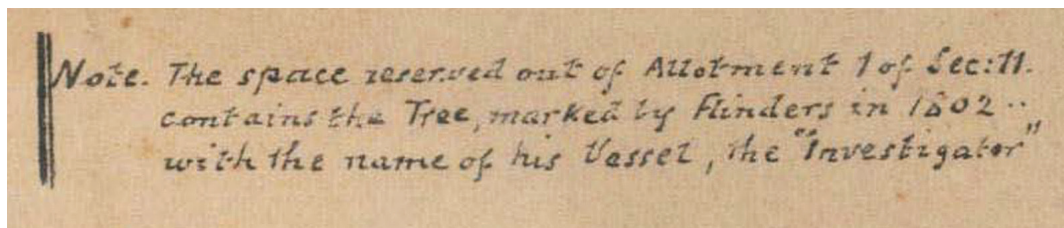 Note. The space reserved out of Allotment 1 of Sec: 11.
contains the Tree, marked by Flinders in 1802 ..
with the name of his Vessel, the "Investigator"